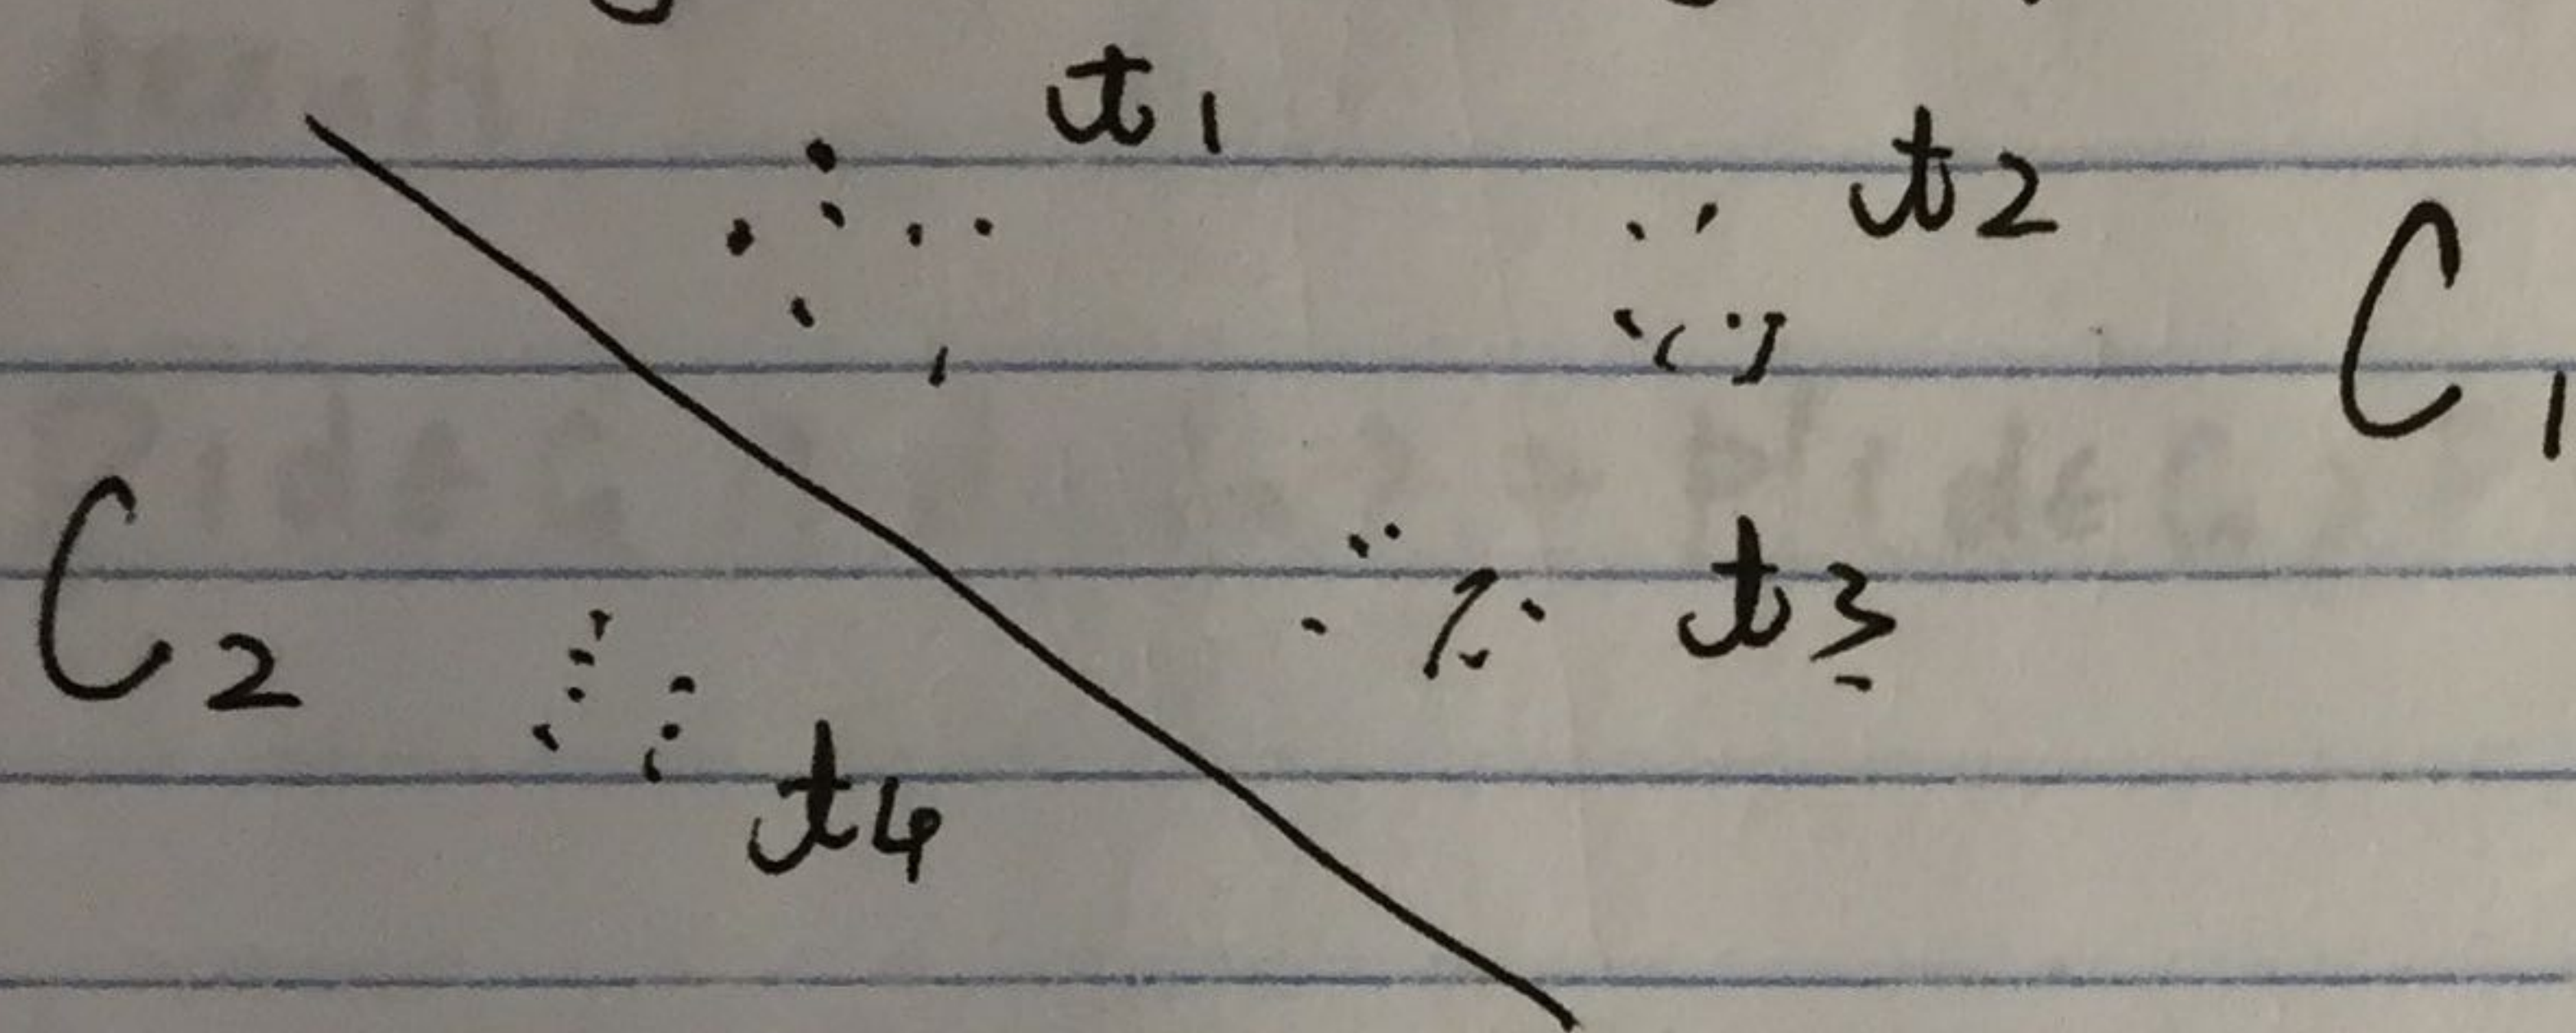 t1
t2
C1
C2
t3
t4